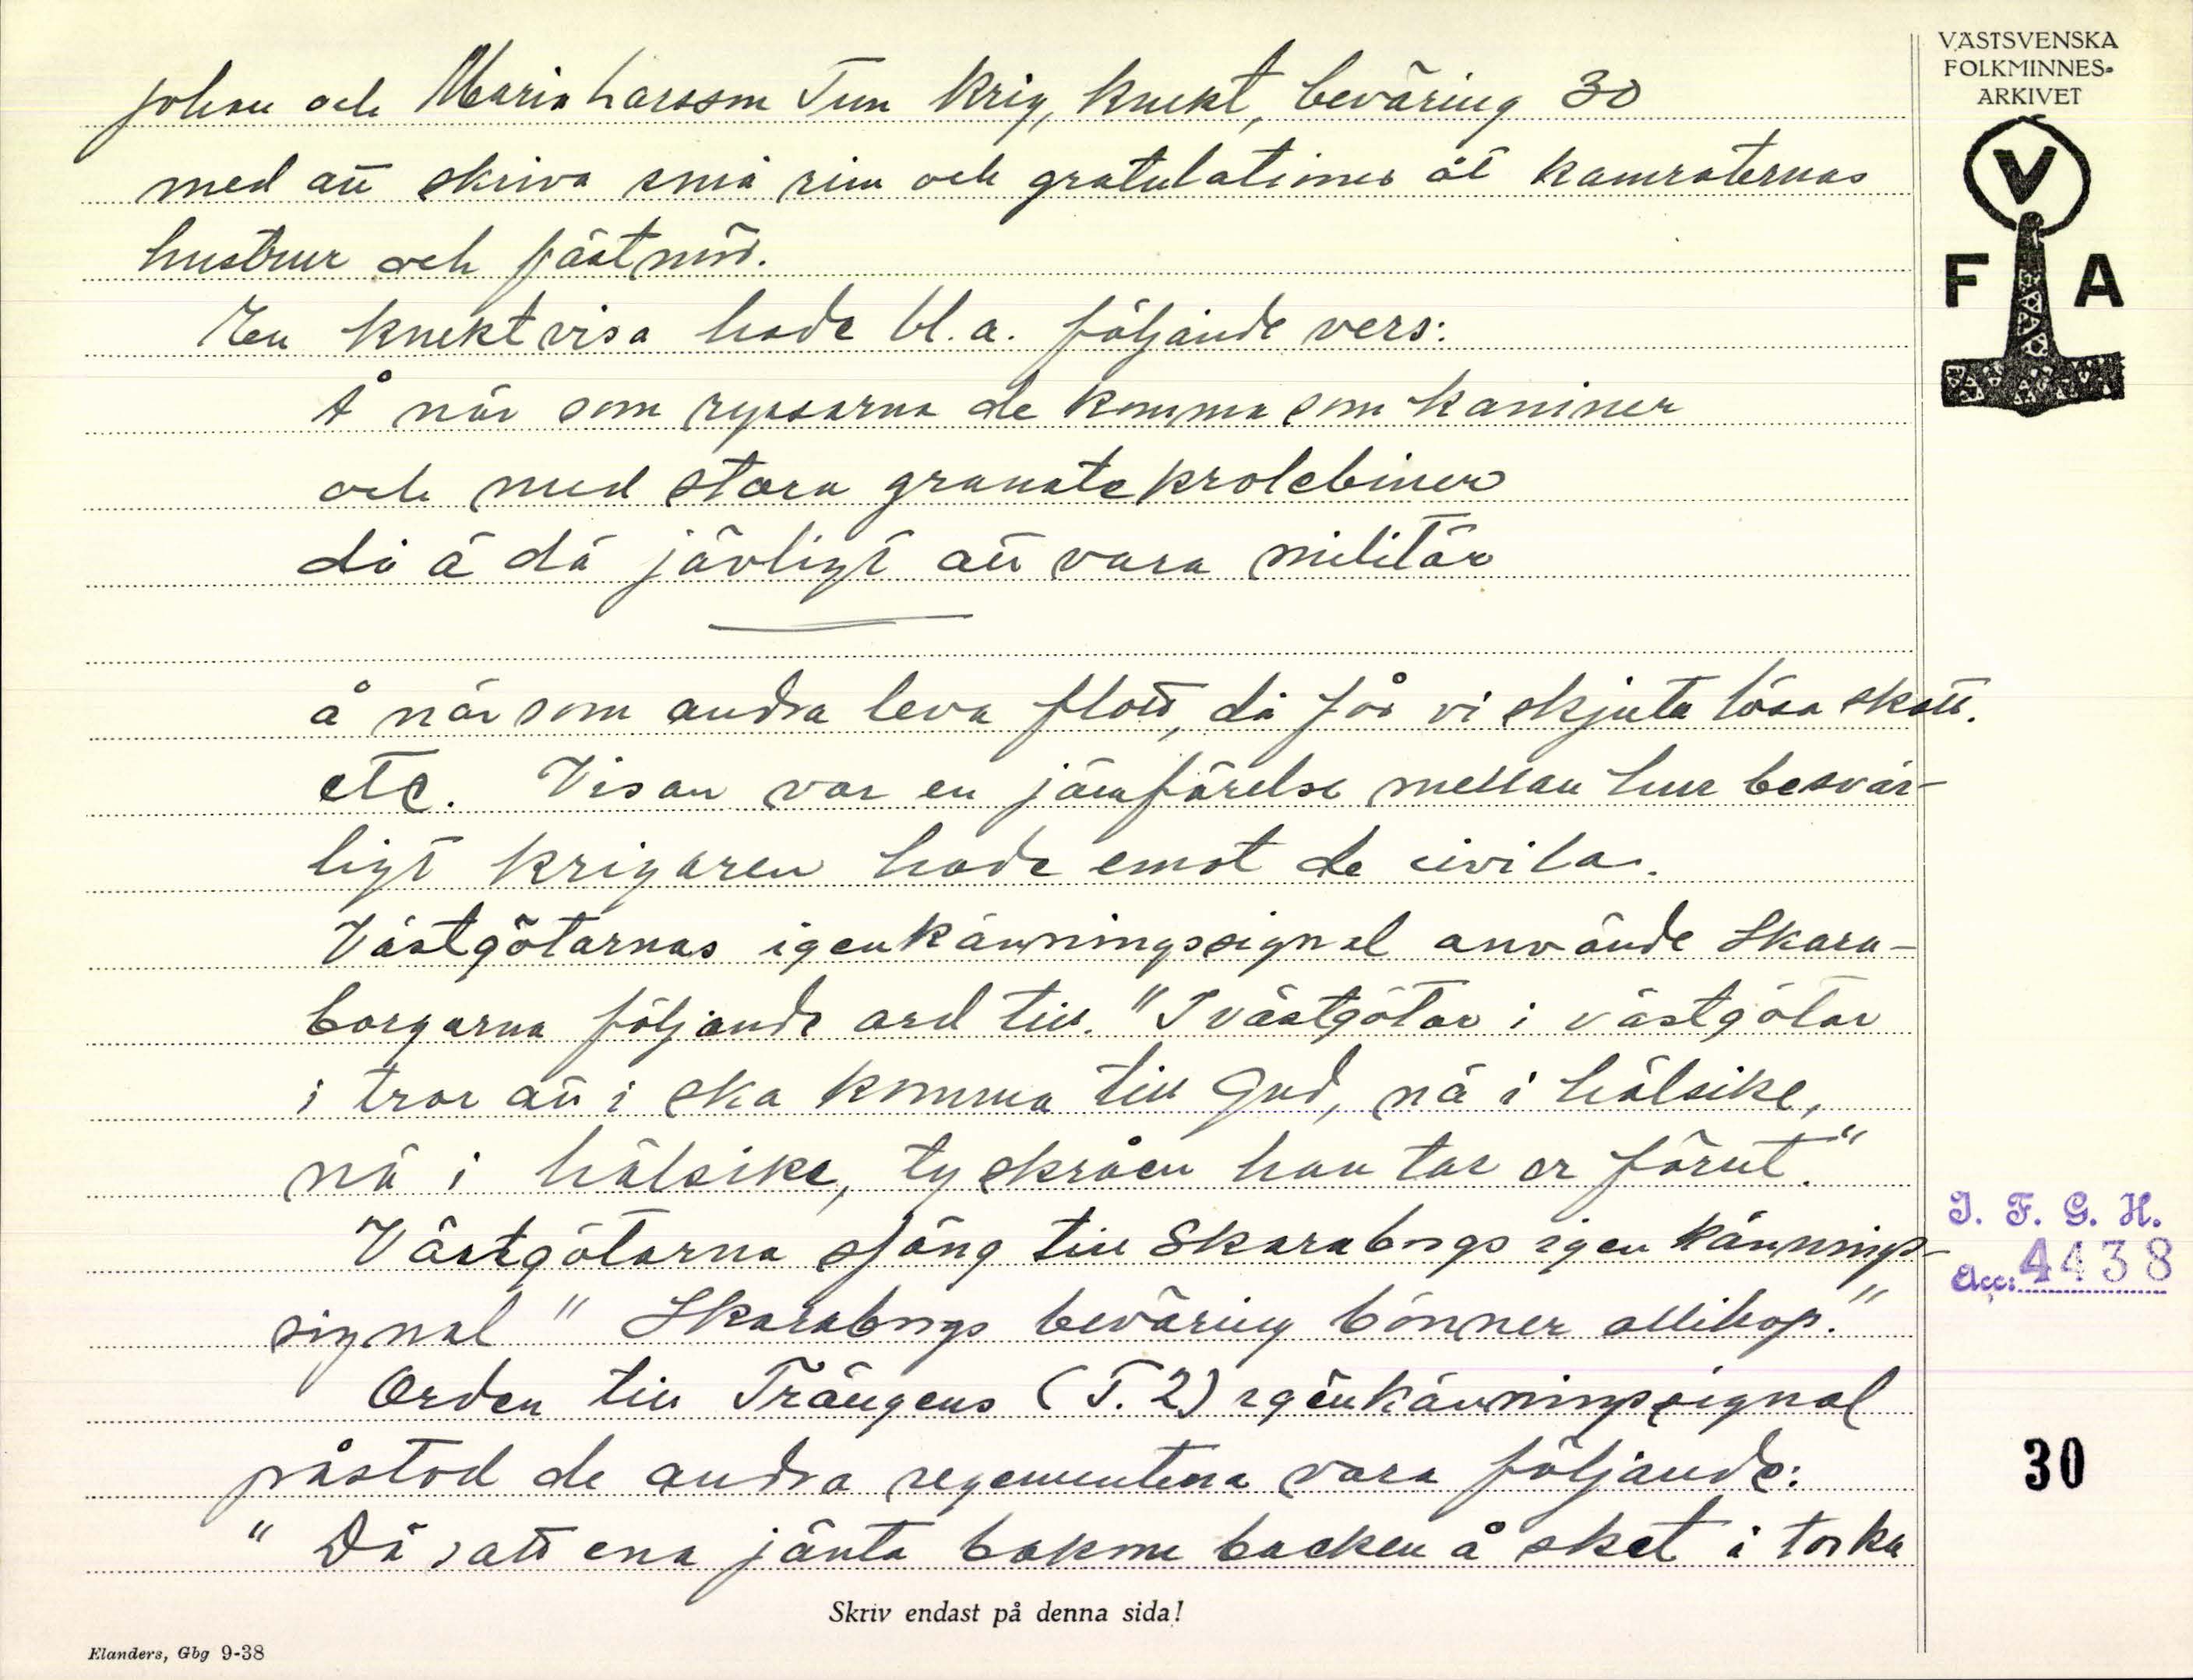 Johan och Maria Larsson Tun Krig, knekt, beväring 30
med att skriva små rim och gratulationer åt kamraternas
hustrur och fästmör.
En knektvisa hade bl.a. följande vers:
Å när som ryssarna de komma som kaniner
och med stora granatekrolebiner
då ä dä jävligt att vara militär
å när som andra leva flott, då får vi skjuta lösa skott.
etc. Visan var en jämförelse mellan hur besvär-
ligt krigaren hade emot de civila.
Västgötarnas igenkänningssignal använde Skara-
borgarna följande ord till. "I västgötar i västgötar
i tror att i ska komma till Gud, nä i hälsike,
nä i hälsike, ty skråen han tar er förut."
Västgötarna sjöng till Skaraborgs igenkännings-
signal " Skaraborgs beväring bönner allihop."
Orden till Trängens (T. 2) igenkänningssignal
påstod de andra regementena vara följande:
" Dä satt ena jänta bakom backen å sket i torka
Skriv endast på denna sida!
Elanders, Gbg 9-38
VÄSTSVENSKA
FOLKMINNES-
ARKIVET
V
F A
I. F. G. H.
Acc: 4438
30